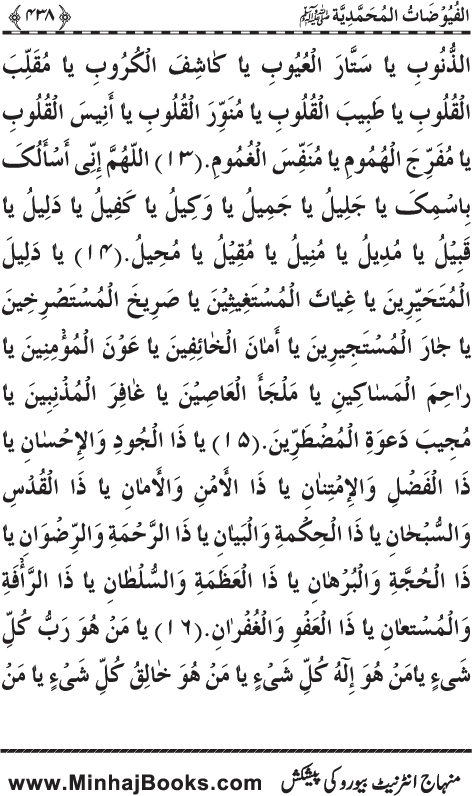 الفُیُوْضَاتُ المُحَمَّدِيَّة ﷺ ﴿ ۴۳۸ ﴾
الذُّنُوبِ يا سَتَّارَ الْعُيُوبِ يا كَاشِفَ الْكُرُوبِ يا مُقَلِّبَ
الْقُلُوبِ يا طَبِيبَ الْقُلُوبِ يا مُنَوِّرَ الْقُلُوبِ يا أَنِيسَ الْقُلُوبِ
يا مُفَرِّجَ الْهُمُومِ يا مُنَفِّسَ الْغُمُومِ.(۱۳) اللّٰهُمَّ إِنِّي أَسْأَلُكَ
بِاسْمِكَ يا جَلِيلُ يا جَمِيلُ يا وَكِيلُ يا كَفِيلُ يا دَلِيلُ يا
قَبِيْلُ يا مُدِيلُ يا مُنِيلُ يا مُقِيْلُ يا مُحِيلُ.(۱۴) يا دَلِيلَ
الْمُتَحَيِّرِينَ يا غِيَاثَ الْمُسْتَغِيثِيْنَ يا صَرِيخَ الْمُسْتَصْرِخِينَ
يا جَارَ الْمُسْتَجِيرِينَ يا أَمَانَ الْخَائِفِينَ يا عَوْنَ الْمُؤْمِنِينَ يا
رَاحِمَ الْمَسَاكِينِ يا مَلْجَأَ الْعَاصِيْنَ يا غَافِرَ الْمُذْنِبِينَ يا
مُجِيبَ دَعْوَةِ الْمُضْطَرِّينَ.(۱۵) يا ذَا الْجُودِ وَالْإِحْسَانِ يا
ذَا الْفَضْلِ وَالْإِمْتِنَانِ يا ذَا الْأَمْنِ وَالْأَمَانِ يا ذَا الْقُدْسِ
وَالسُّبْحَانِ يا ذَا الْحِكْمَةِ وَالْبَيَانِ يا ذَا الرَّحْمَةِ وَالرِّضْوَانِ يا
ذَا الْحُجَّةِ وَالْبُرْهَانِ يا ذَا الْعَظَمَةِ وَالسُّلْطَانِ يا ذَا الرَّأْفَةِ
وَالْمُسْتَعَانِ يا ذَا الْعَفْوِ وَالْغُفْرَانِ.(۱۶) يا مَنْ هُوَ رَبُّ كُلِّ
شَيْءٍ يامَنْ هُوَ إِلٰهُ كُلِّ شَيْءٍ يا مَنْ هُوَ خَالِقُ كُلِّ شَيْءٍ يا مَنْ
منہاج انٹرنیٹ بیورو کی پیشکش www.MinhajBooks.com